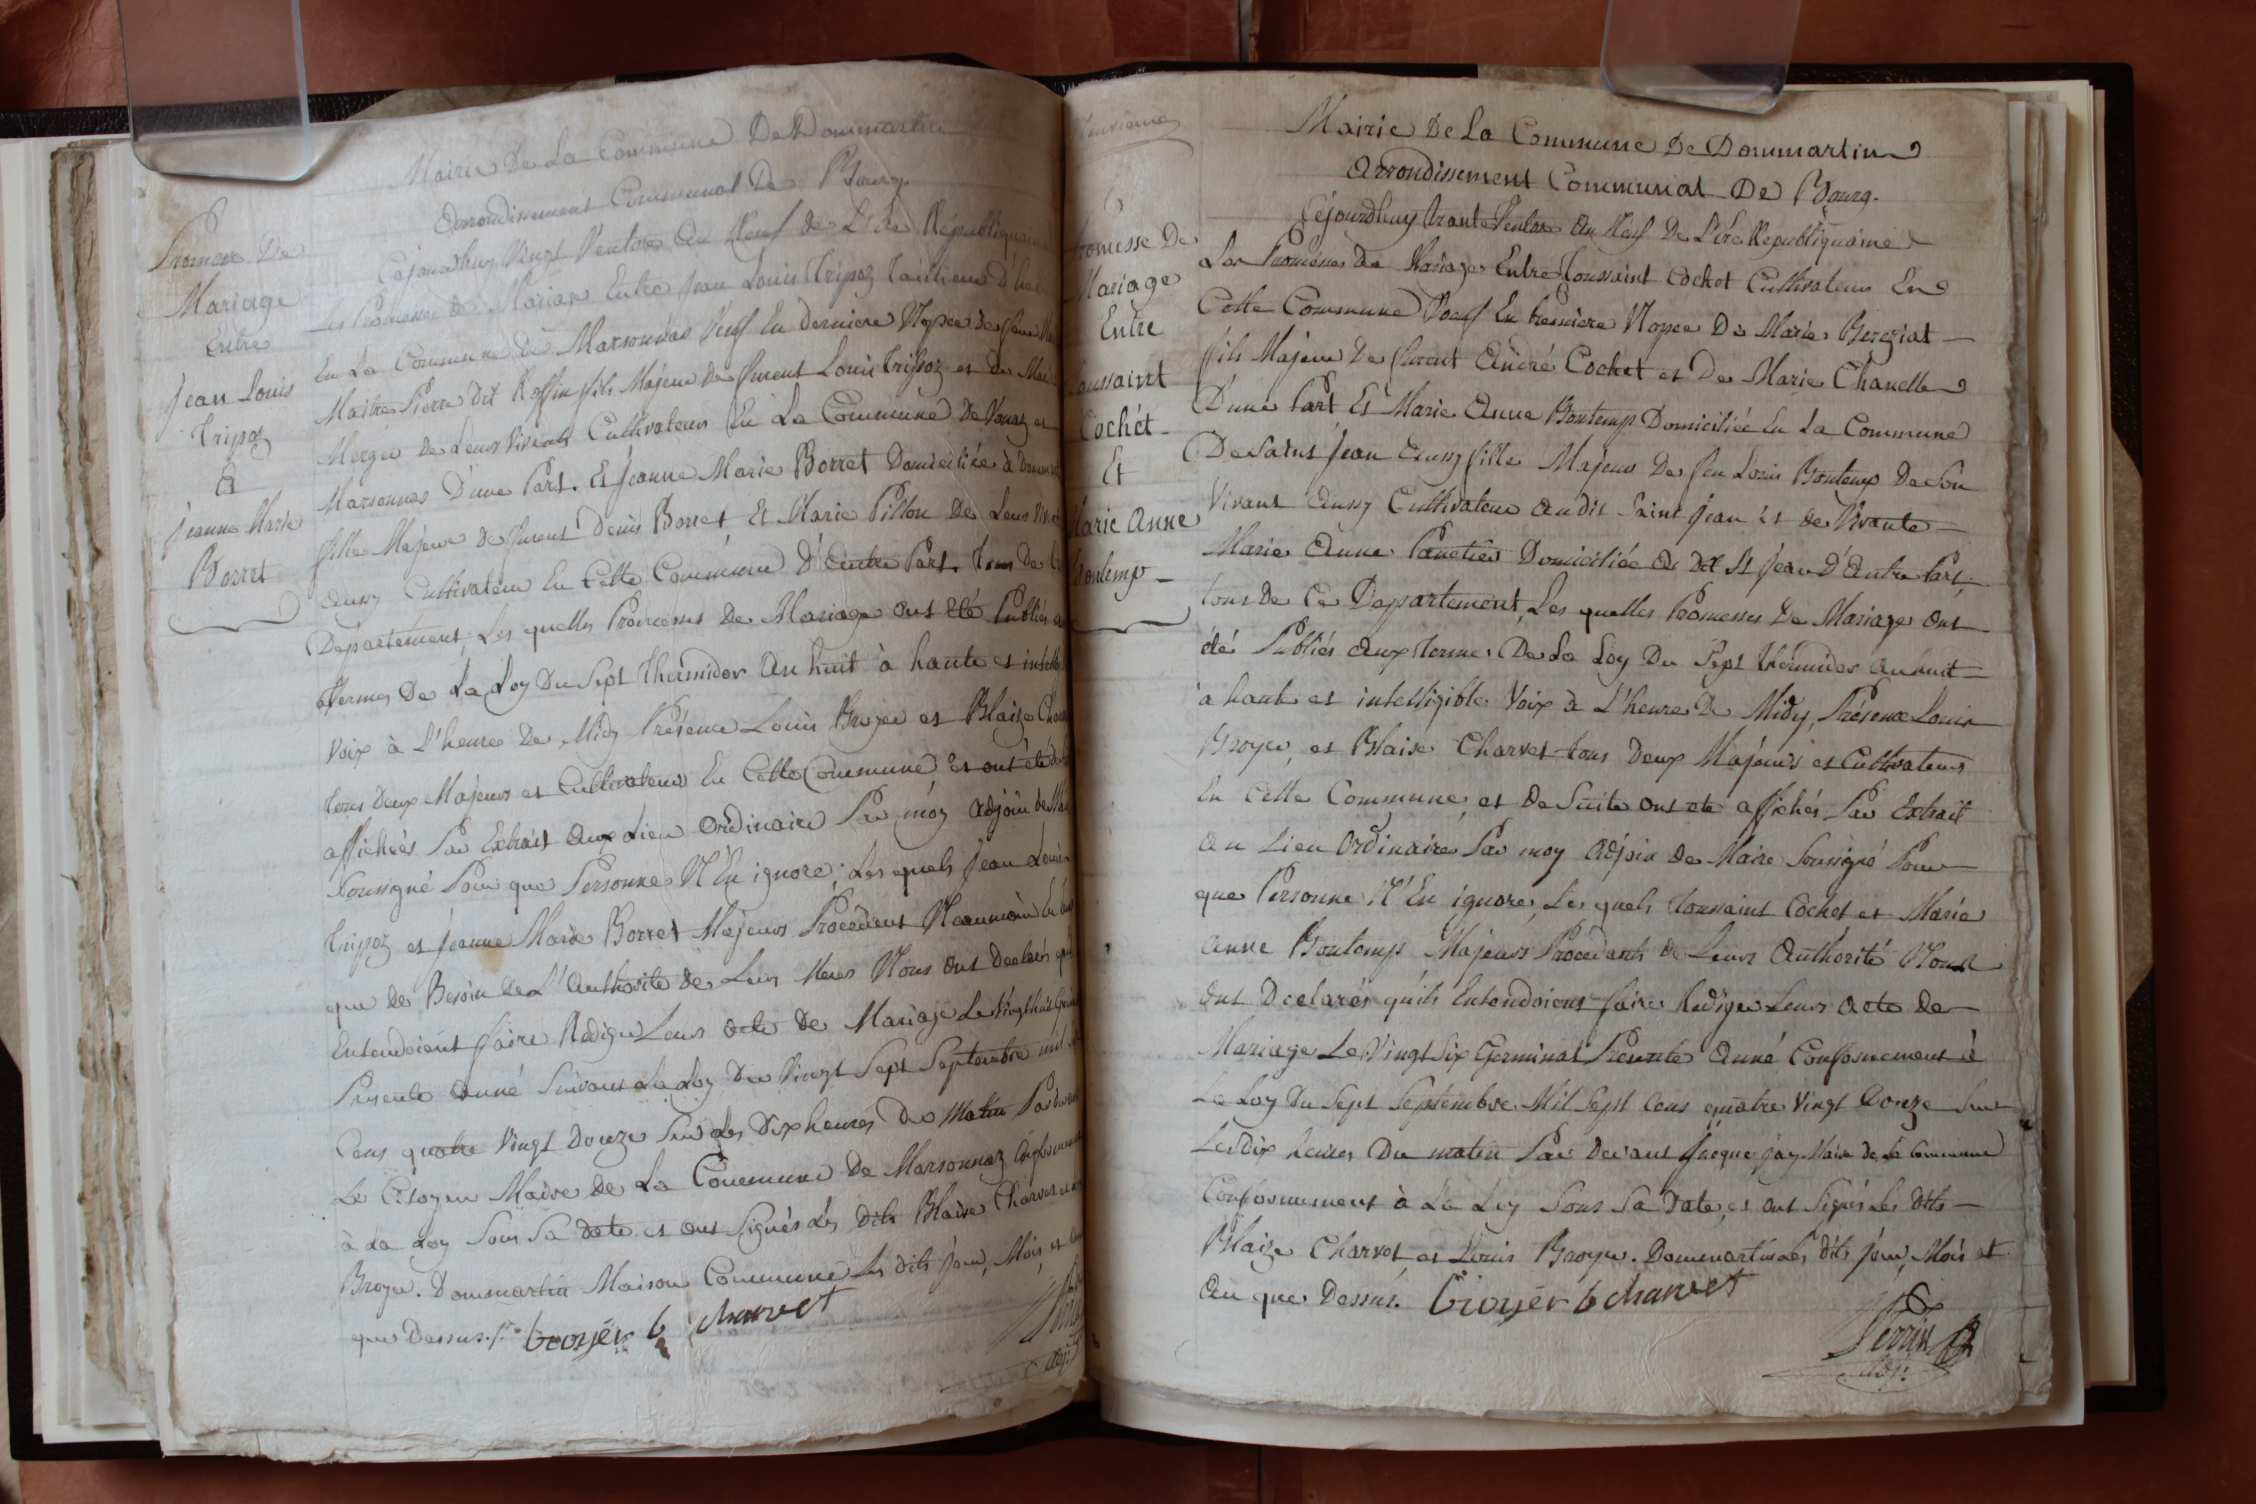 Mairie De La Commune De Dommartin
Arrondissement Communal De Bourg
Promesse De
Mariage
Entre
Jean Louis
Tripoz
&
Jeanne Marie
Borret
Cejourdhuy Vingt Ventose An Neuf De L'Ere Républiquaine
Les Promesses De Mariage Entre Jean Louis Tripoz
En La Commune De Marsonnas Veuf En derniere Nopce de feue
Maitre Pierre dit Roffin fils Majeur De furent Louis Tripoz et De
Merger De Leurs Vivants Cultivateurs En La Commune De Vonaz et
Marsonnas D'une Part. Et Jeanne Marie Borret Domiciliée à
fille Majeure De furent Denis Borret Et Marie Pillon De Leurs
Aussy Cultivateur En Cette Commune D'Autre Part. Tous De
Departement, Les quelles Promesses De Mariage ont été Publiés
Termes De La Loy Du Sept Thermidor An huit à haute et
Voix à L'heure De Midy Présence Louis Broyer et Blaise
tous Deux Majeurs et Cultivateurs En Cette Commune et ont été
affichées Par Extrait Aux Lieu Ordinaire Par moy Adjoin de
Soussigné Pour que Personne N'En ignore; Les quels Jean Louis
Tripoz et Jeanne Marie Borret Majeurs Procedent Neaumoin
que De Besoin De L'Authorité De Leurs Meres Nous Ont Declarés
Entendoient faire Rediger Leurs Acte De Mariage Le Vingt
Presente Anné Suivant La Loy Du Vingt Sept Septembre mil
Cens quatre Vingt Douze Sur Les Dix heures Du Matin Par
Le Citoyen Maire De La Commune De Marsonnaz
à La Loy Sous Sa Date et ont Signés Les Dits Blaise Charvet
Broyer. Dommartin Maison Commune Les dits Jour, Mois, et
que Dessus. broyer b charvet
adj.
Mairie De La Commune De Dommartin
Arrondissement Communal De Bourg.
Promesse De
Mariage
Entre
Toussaint
Cochet
Et
Marie Anne
Bontemp
Cejourdhuy trante Ventose An Neuf De L'ére Republiquaine
Les Promesses De Mariage Entre Toussaint Cochet Cultivateur En
Cette Commune Veuf En premiere Nopce De Marie Bereziat
fils Majeur De furent André Cochet et De Marie Chanelle
D'une Part Et Marie Anne Bontemp Domiciliée En La Commune
De Saint Jean Aussy fille Majeure De feu Louis Bontemp De Son
Vivant Aussy Cultivateur Au dit Saint Jean et De Vivante
Marie Anne Panetier Domiciliée Au dit St Jean D'Autre Part,
tous De Ce Departement, Les quelles Promesses De Mariage Ont
été Publiés Aux Terme De La Loy Du Sept Thermidor An huit
à haute et intelligible Voix à L'heure De Midy, Présence Louis
Broyer, et Blaise Charvet tous Deux Majeurs et Cultivateurs
En Cette Commune, et De Suite ont été affichés Par Extrait
Au Lieu Ordinaire Par moy Adjoin De Maire Soussigné Pour
que Personne N'En ignore, Les quels Toussaint Cochet et Marie
Anne Bontemp Majeurs Procedants De Leurs Authorité Nous
Ont Declarés qu'ils Entendoient faire Rediger Leurs Acte De
Mariage Le Vingt Six Germinal Presente Anné Conformement à
La Loy Du Sept Septembre Mil Sept Cens quatre Vingt Douze Sur
Les Dix heures Du matin Par Devant Jacque Jay Maire de La Commune
Conformement à La Loy Sous Sa Date, et Ont Signés Les Dits
Blaize Charvet et Louis Broyer. Dommartin Les Dits Jour, Mois et
An que Dessus. broyer b charvet
Perrin
adj.